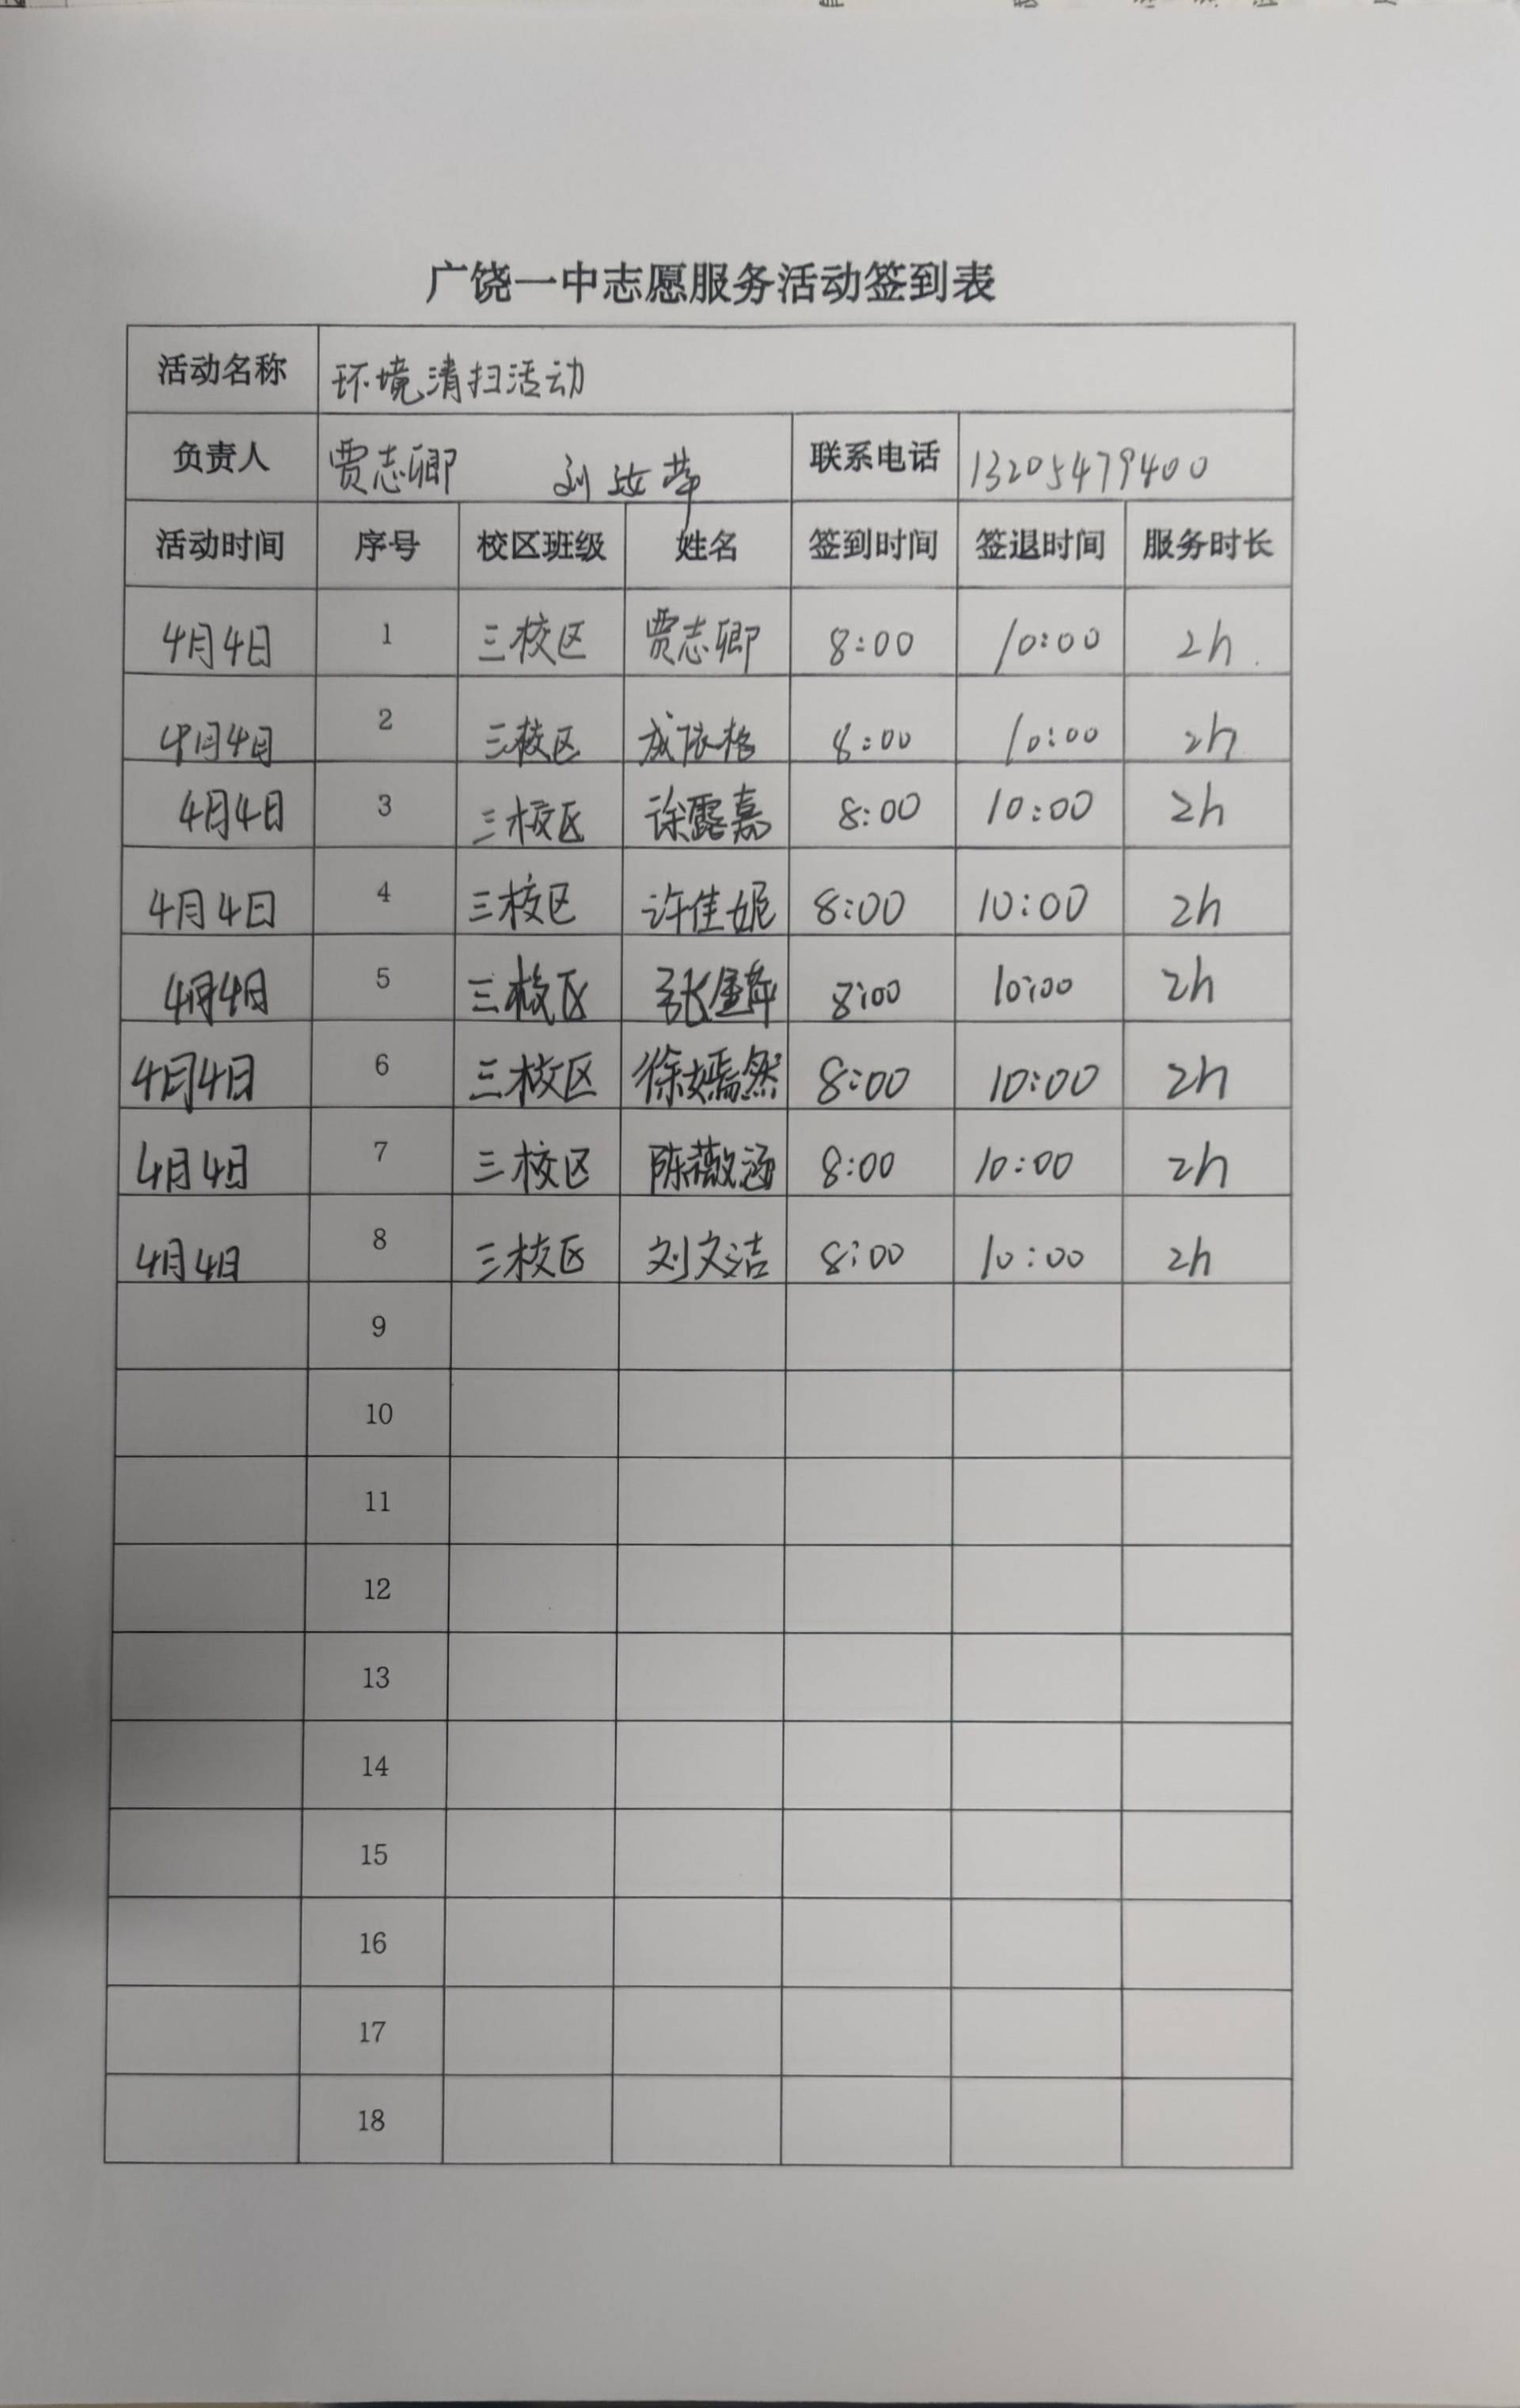 广饶一中志愿服务活动签到表
活动名称 环境清扫活动
负责人 贾志卿 刘 萍 联系电话 13205479400
活动时间 序号 校区班级 姓名 签到时间 签退时间 服务时长
4月4日 1 三校区 贾志卿 8:00 10:00 2h
4月4日 2 三校区 成依格 8:00 10:00 2h
4月4日 3 三校区 徐露嘉 8:00 10:00 2h
4月4日 4 三校区 许佳妮 8:00 10:00 2h
4月4日 5 三校区 张 8:00 10:00 2h
4月4日 6 三校区 徐嫣然 8:00 10:00 2h
4月4日 7 三校区 陈薇涵 8:00 10:00 2h
4月4日 8 三校区 刘文洁 8:00 10:00 2h
9
10
11
12
13
14
15
16
17
18